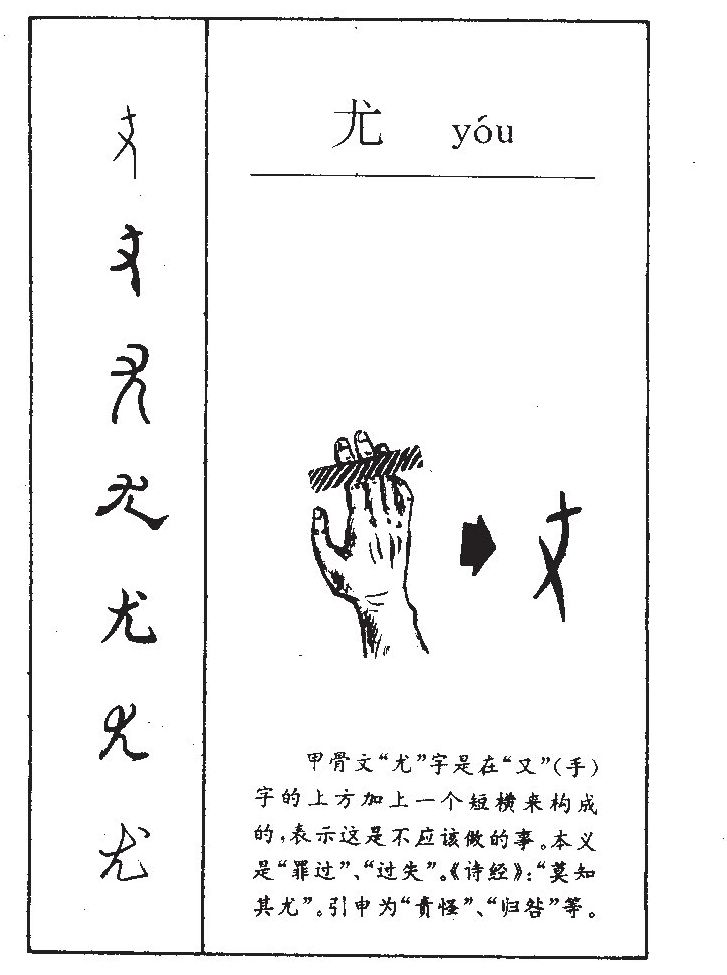 尤 yóu
甲骨文“尤”字是在“又”(手)
字的上方加上一个短横来构成
的,表示这是不应该做的事。本义
是“罪过”、“过失”。《诗经》:“莫知
其尤”。引申为“责怪”、“归咎”等。